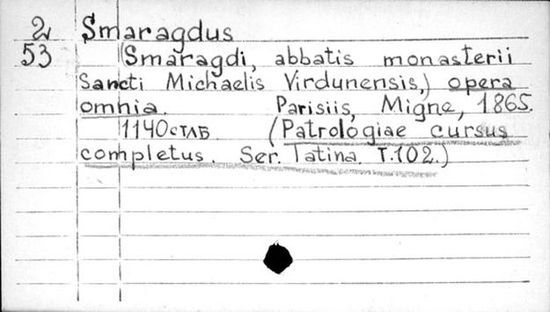 2 Smaragdus
53 (Smaragdi, abbatis monasterii
Sancti Michaelis Virdunensis,) opera
omnia. Parisiis, Migne, 1865.
1140 стлб (Patrologiae cursus
completus. Ser. latina. T.102.)